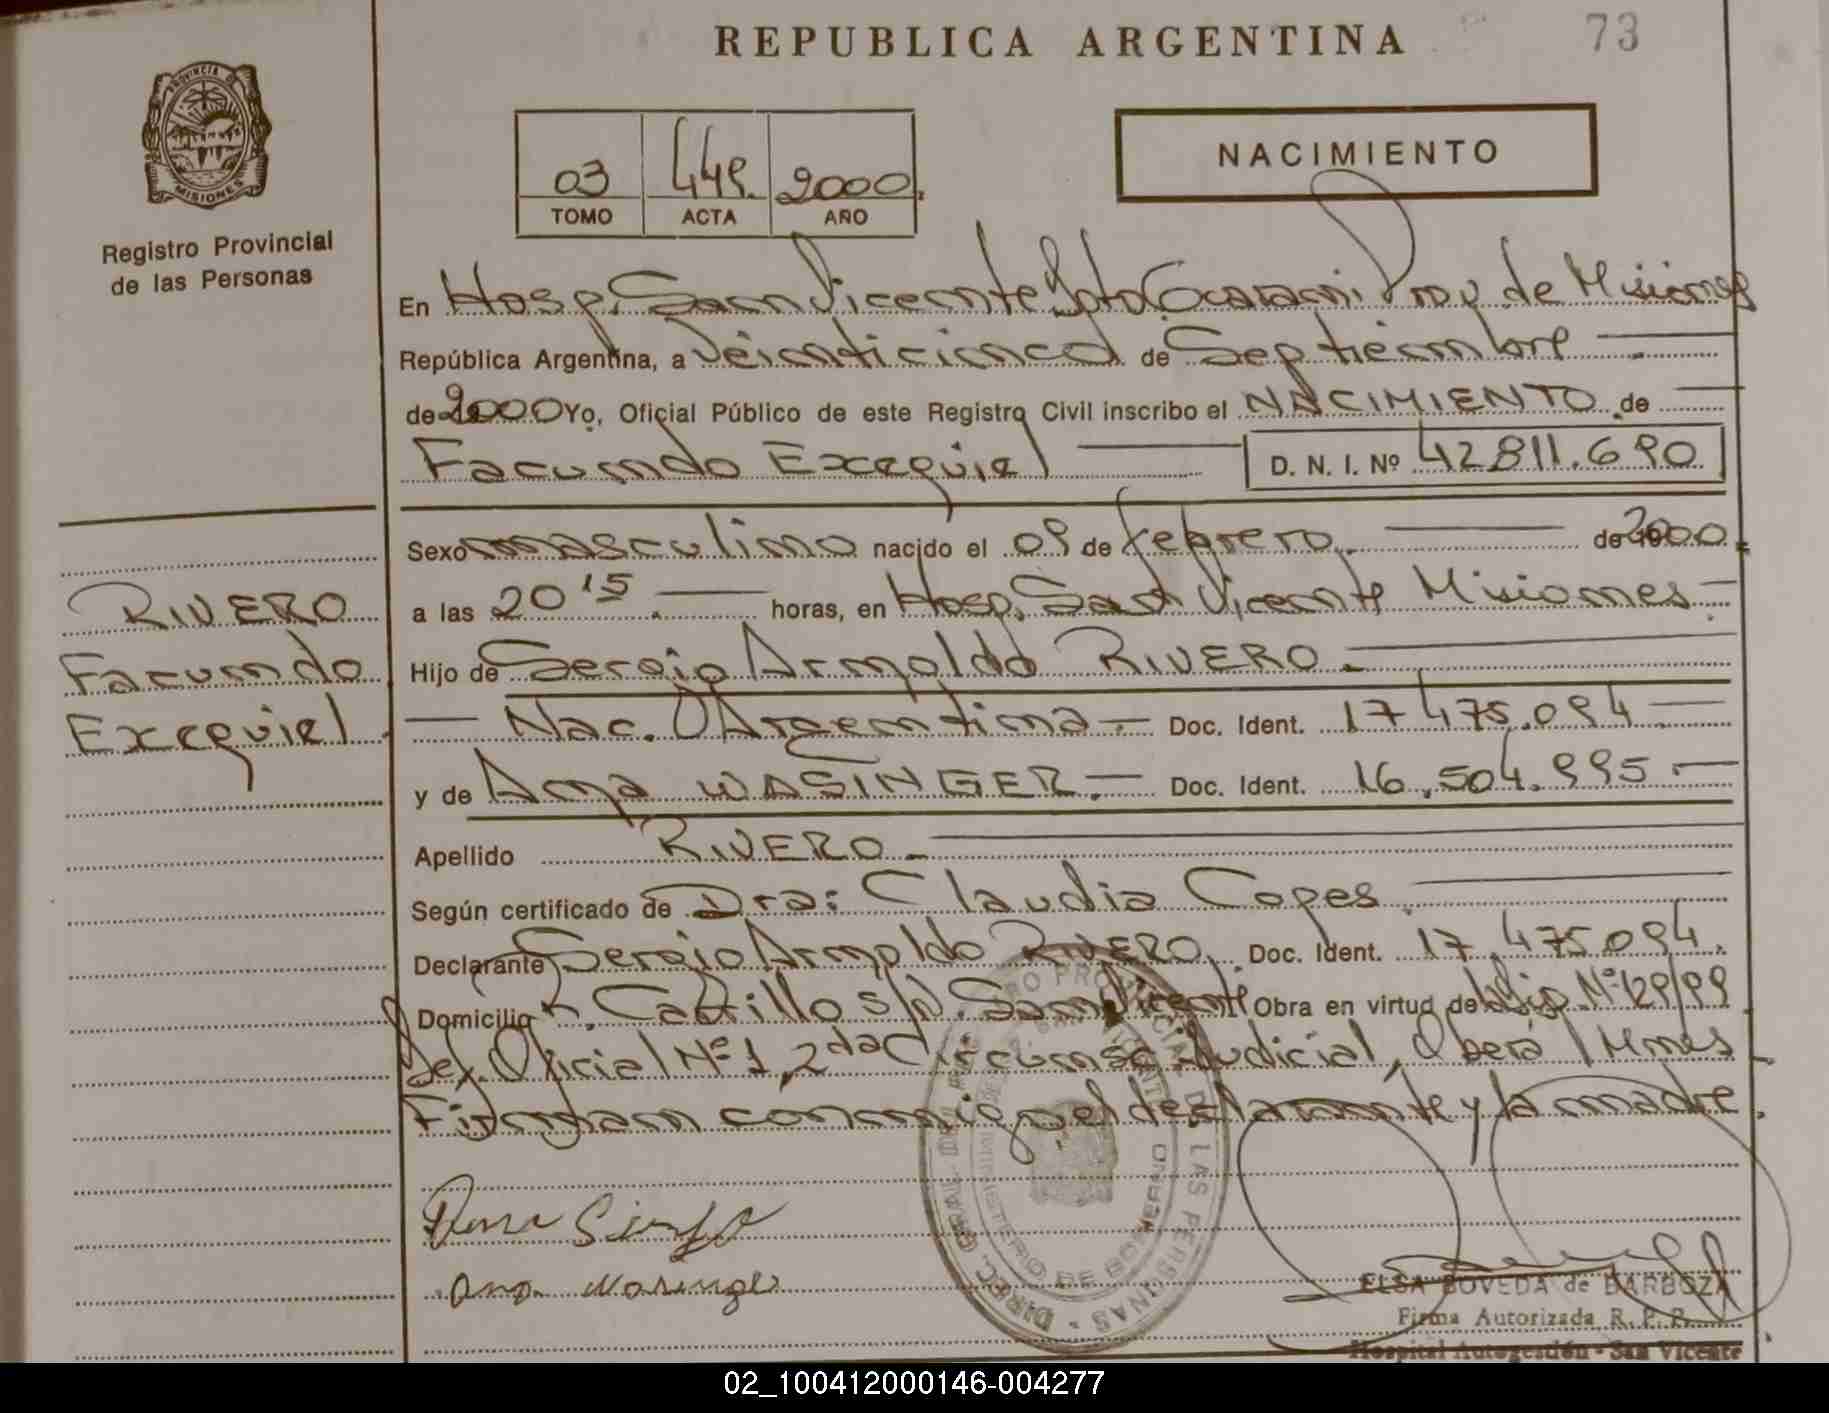 REPUBLICA ARGENTINA
73
PROVINCIA DE
MISIONES
Registro Provincial
de las Personas
03 449. 2000.
TOMO ACTA AÑO
NACIMIENTO
En Hosp. San Vicente Dpto. Guarani Prov de Misiones
República Argentina, a Veinticinco de Septiembre
de 2000 Yo, Oficial Público de este Registro Civil inscribo el NACIMIENTO de
Facundo Exequiel D. N. I. Nº 42811.690
Sexo masculino nacido el 09 de febrero de 2000
a las 20 15 horas, en Hosp. San Vicente Misiones
Hijo de Sergio Arnoldo RIVERO
Nac. Argentina Doc. Ident. 17 475.094
y de Ana WASINGER. Doc. Ident. 16.504.995.
Apellido RIVERO
Según certificado de Dra: Claudia Copes
Declarante Sergio Arnoldo RIVERO. Doc. Ident. 17.475.094.
Domicilio Castillo s/n. San Vicente Obra en virtud de Disp. Nº 129/99
Def. Oficial Nº 1, 2da Circunsc. Judicial, Oberá Mnes
Firman conmigo el declarante y la madre.
RIVERO
Facundo
Exequiel
Ana Wasinger
DIREC. GRAL. DEL REGISTRO PROVINCIAL DE LAS PERSONAS
MINISTERIO DE GOBIERNO
ELSA BOVEDA de BARBOZA
Firma Autorizada R. P. P.
Hospital Autogestión - San Vicente
02_100412000146-004277